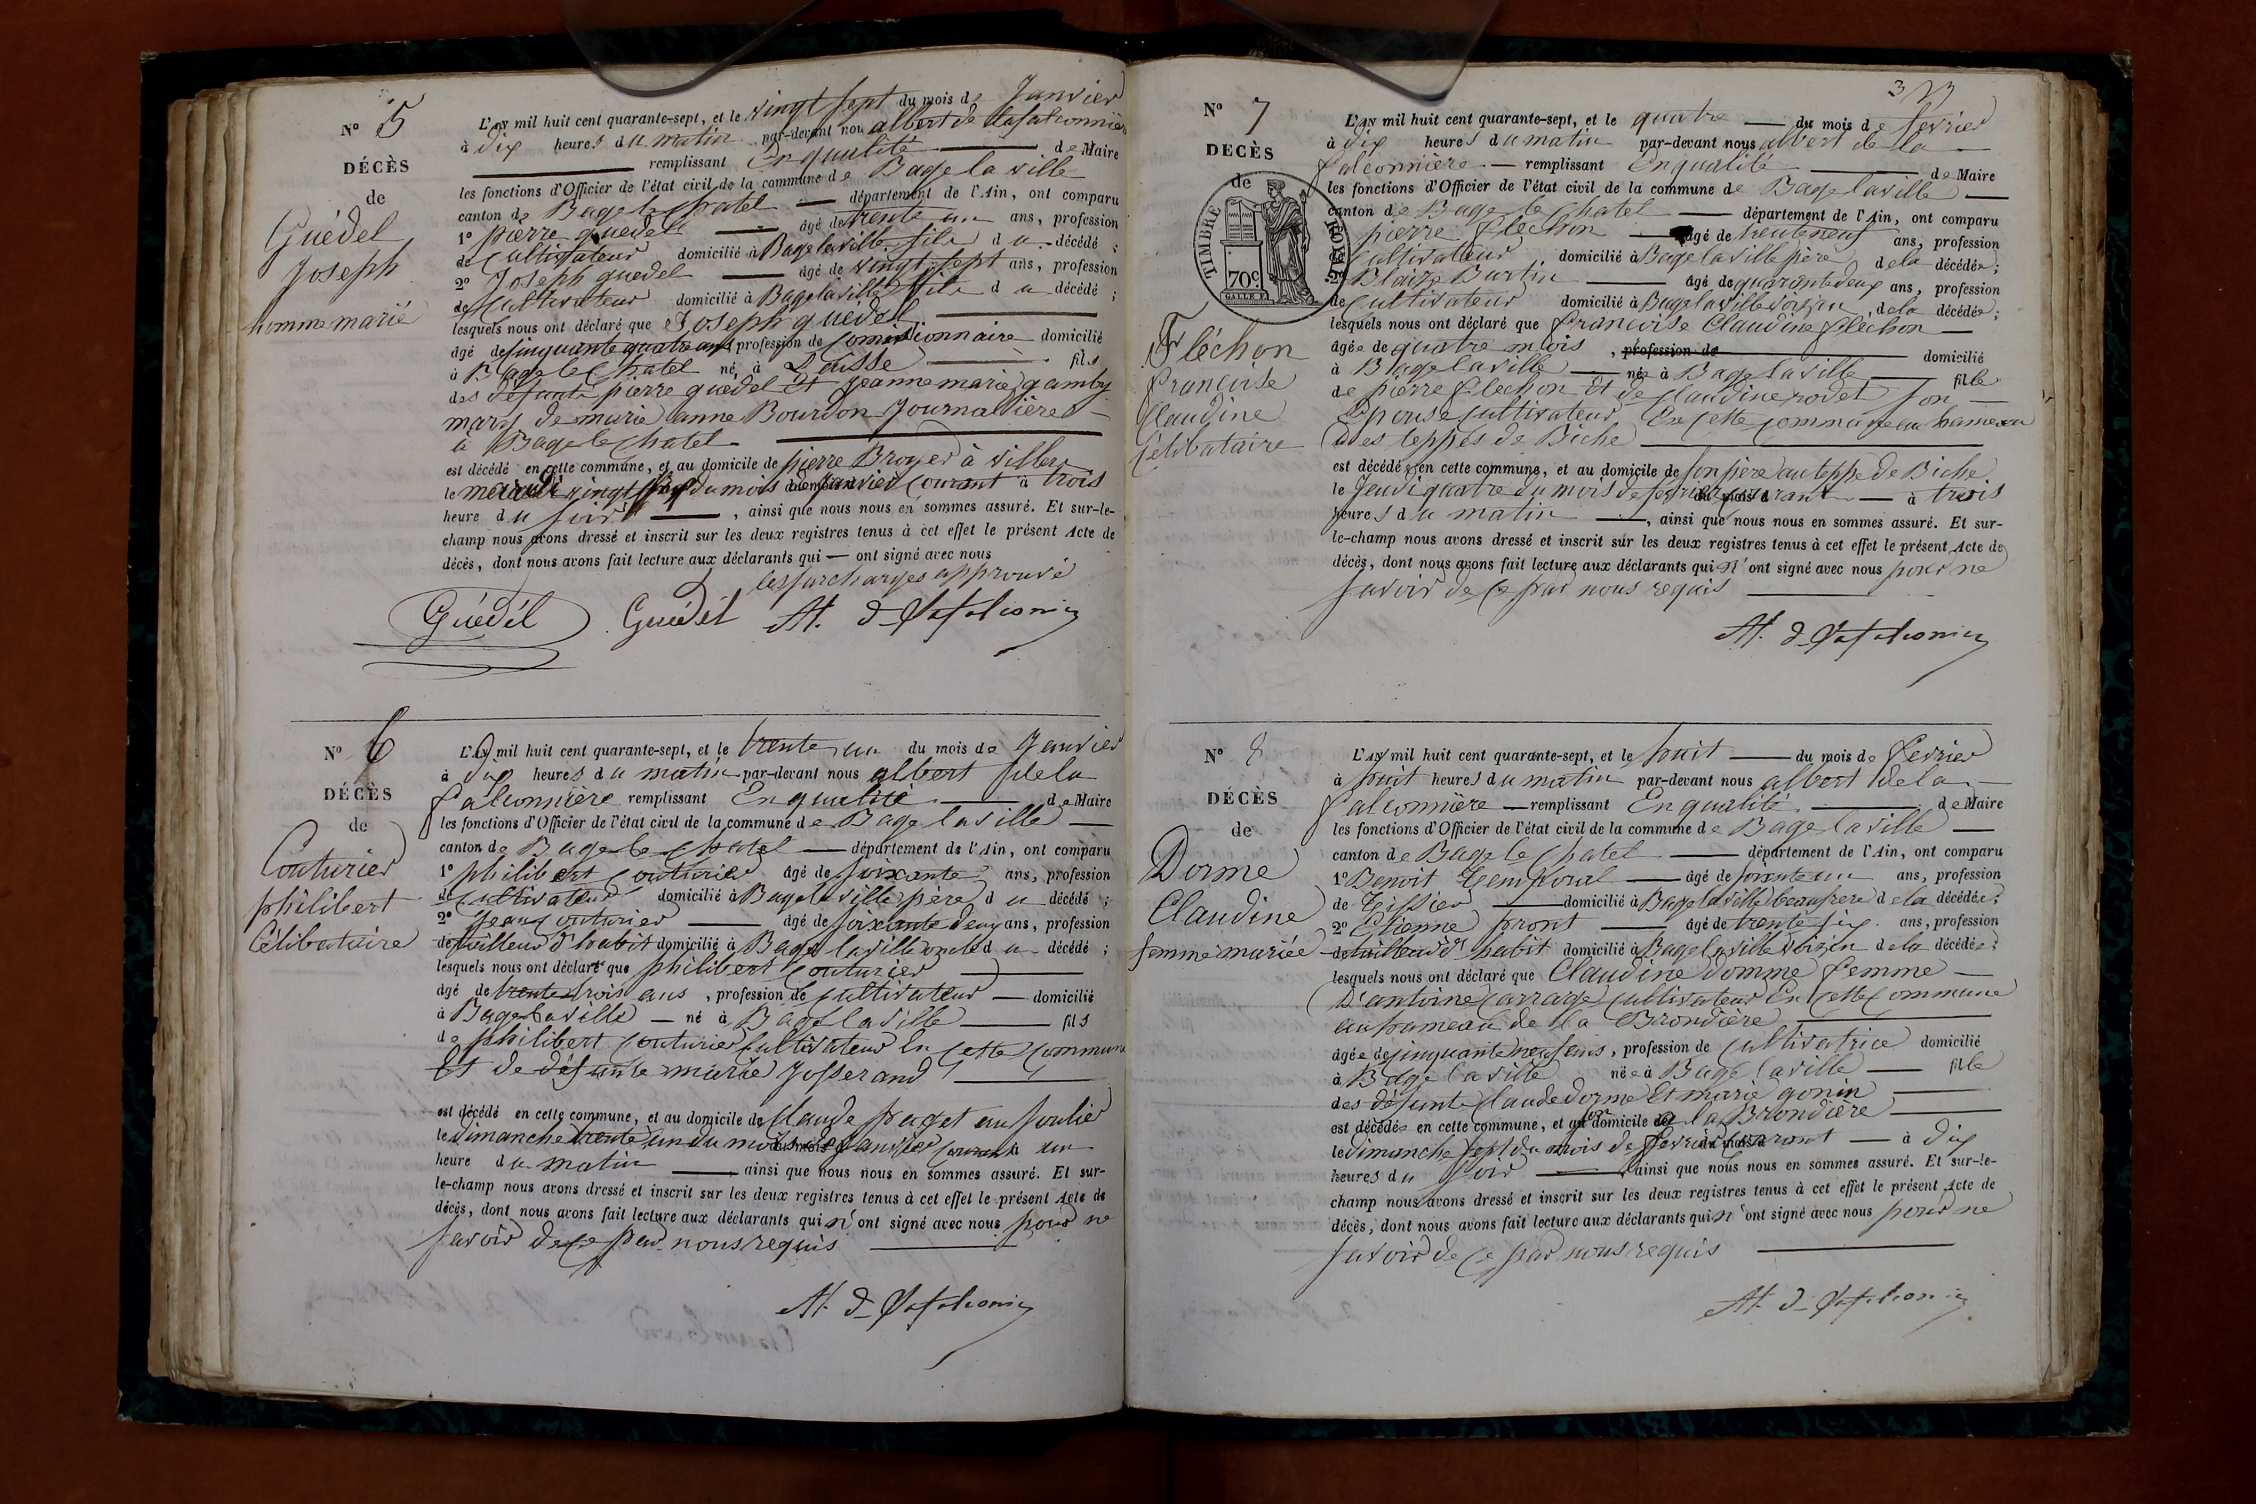 No 5
DÉCÈS
de
Guédel
Joseph
homme marié
L'AN mil huit cent quarante-sept, et le vingt sept du mois de Janvier
à dix heures du matin par-devant nous albert de lafalconnière
remplissant En qualité de Maire
les fonctions d'Officier de l'état civil de la commune de Bage la ville
canton de Bage le Chatel département de l'Ain, ont comparu
1º pierre guedel âgé de trente un ans, profession
de Cultivateur domicilié à Bage la ville fils du décédé ;
2º Joseph guedel âgé de vingt sept ans, profession
de Cultivateur domicilié à Bage la ville fils du décédé ;
lesquels nous ont déclaré que Joseph guédel
âgé de cinquante quatre ans, profession de Comissionnaire domicilié
à Bage le Chatel né à fils
des défunts pierre guedel Et Jeanne marie gamby
mary de marie anne Bourdon Journalière
à Bage le Chatel
est décédé en cette commune, et au domicile de pierre Broyer à
le vingt du mois de Janvier Courant à trois
heure du soir , ainsi que nous nous en sommes assuré. Et sur-le-
champ nous avons dressé et inscrit sur les deux registres tenus à cet effet le présent Acte de
décès, dont nous avons fait lecture aux déclarants qui — ont signé avec nous
les surcharges approuvé
Guédél Guédél Al. de Lafalconnier
No 6
DÉCÈS
de
Couturier
philibert
Célibataire
L'AN mil huit cent quarante-sept, et le trente un du mois de Janvier
à dix heures du matin par-devant nous albert dela
falconnière remplissant En qualité de Maire
les fonctions d'Officier de l'état civil de la commune de Bage la ville
canton de Bage le Chatel département de l'Ain, ont comparu
1º philibert Couturier âgé de soixante ans, profession
de Cultivateur domicilié à Bage la ville père du décédé ;
2º Jean Couturier âgé de soixante deux ans, profession
de tailleur d'habit domicilié à Bage la ville oncle du décédé ;
lesquels nous ont déclaré que philibert Couturier
âgé de trente trois ans, profession de Cultivateur domicilié
à Bage la ville né à Bage la ville fils
de philibert Couturier Cultivateur En Cette Commune
Et de défunte marie Josserand
est décédé en cette commune, et au domicile de Claude paget au
le dimanche trente un du mois de Janvier courant à un
heure du matin ainsi que nous nous en sommes assuré. Et sur-
le-champ nous avons dressé et inscrit sur les deux registres tenus à cet effet le présent Acte de
décès, dont nous avons fait lecture aux déclarants qui n'ont signé avec nous pour ne
savoir de ce par nous requis
Al. de Lafalconnier
3
No 7
DECÈS
de
TIMBRE ROYAL
70c.
Fléchon
françoise
Claudine
Célibataire
L'AN mil huit cent quarante-sept, et le quatre du mois de fevrier
à dix heures du matin par-devant nous albert de la
falconnière remplissant En qualité de Maire
les fonctions d'Officier de l'état civil de la commune de Bage la ville
canton de Bage le Chatel département de l'Ain, ont comparu
pierre flechon âgé de trente neuf ans, profession
Cultivateur, domicilié à Bage la ville père de la décédée ;
2º Blaize Burtin âgé de quarante deux ans, profession
de Cultivateur domicilié à Bage la ville voisin de la décédée ;
lesquels nous ont déclaré que françoise Claudine flechon
âgée de quatre mois , profession de domicilié
à Bage la ville née à Bage la ville fille
de pierre flechon Et de Claudine rodet son
Epouse Cultivateur En Cette Commune au hameau
des teppes de Biche
est décédée en cette commune, et au domicile de son père au teppe de Biche
le Jeudi quatre du mois de fevrier Courant à trois
heures du matin , ainsi que nous nous en sommes assuré. Et sur-
le-champ nous avons dressé et inscrit sur les deux registres tenus à cet effet le présent Acte de
décès, dont nous avons fait lecture aux déclarants qui n'ont signé avec nous pour ne
savoir de ce par nous requis
Al. de Lafalconnier
No 8
DÉCÈS
de
Dorme
Claudine
femme mariée
L'AN mil huit cent quarante-sept, et le huit du mois de fevrier
à huit heures du matin par-devant nous albert dela
falconnière remplissant En qualité de Maire
les fonctions d'Officier de l'état civil de la commune de Bage la ville
canton de Bage le Chatel département de l'Ain, ont comparu
1º Benoit Temporal âgé de ans, profession
de Tissier domicilié à Bage la ville beaufrere de la décédée ;
2º Etienne pront âgé de trente six ans, profession
de tailleur d'habit domicilié à Bage la ville voisin de la décédée ;
lesquels nous ont déclaré que Claudine Domme femme
D'antoine Carrage Cultivateur En Cette Commune
au hameau de la Brondière
âgée de cinquante neuf ans, profession de Cultivatrice domicilié
à Bage la ville née à Bage la ville fille
des défunts Claude Dorme Et marie gonin
est décédée en cette commune, et au domicile la Brondière
le dimanche sept du mois de fevrier Courant à dix
heures du soir ainsi que nous nous en sommes assuré. Et sur-le-
champ nous avons dressé et inscrit sur les deux registres tenus à cet effet le présent Acte de
décès, dont nous avons fait lecture aux déclarants qui n'ont signé avec nous pour ne
savoir de ce par nous requis
Al. de Lafalconnier